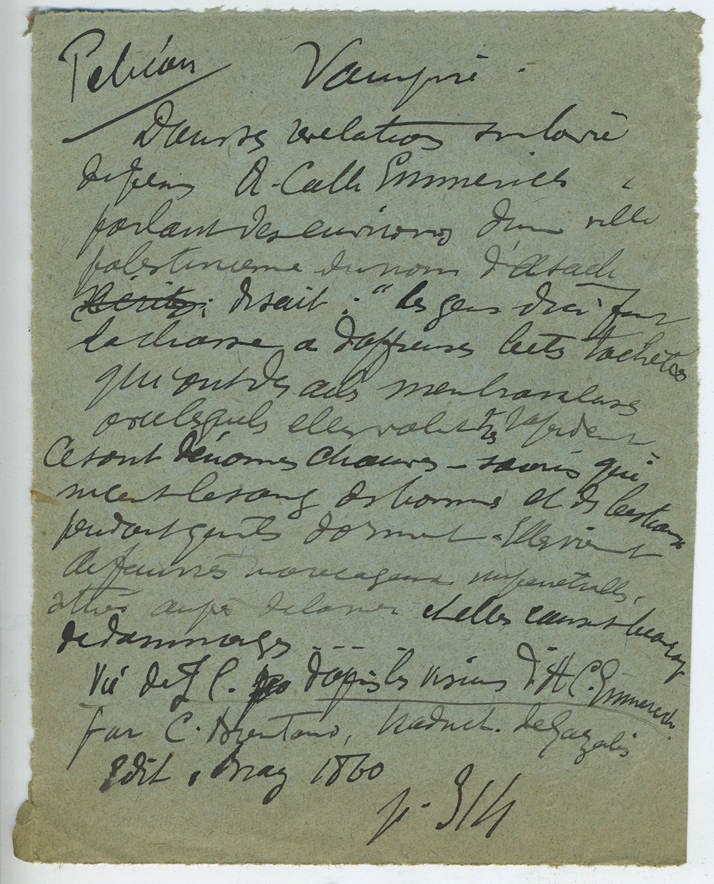 Pelican Vampire.
Dans ses revelations sur la vie
de Jesus A-Cath Emmerich,
parlant des environs d'une ville
palestinienne du nom d'Asach
disait : "les gens d'ici font
la chasse a d'affreuses bets tachetées
qui ont des ailes membraneuses
avec lesquels elles volent très rapidement
Ce sont d'énormes chauves-souris qui
sucent le sang des hommes et des bestiaux
pendant qu'ils dorment - Elles viennent
de marecageux impenetrables,
de la mer et elles causent beaucoup
de dommages ...
Vie de J C. d'après les visions d'A C. Emmerich.
par C. Brentano, traduct. de Cazalès
Edit. Bray 1860
p. 314